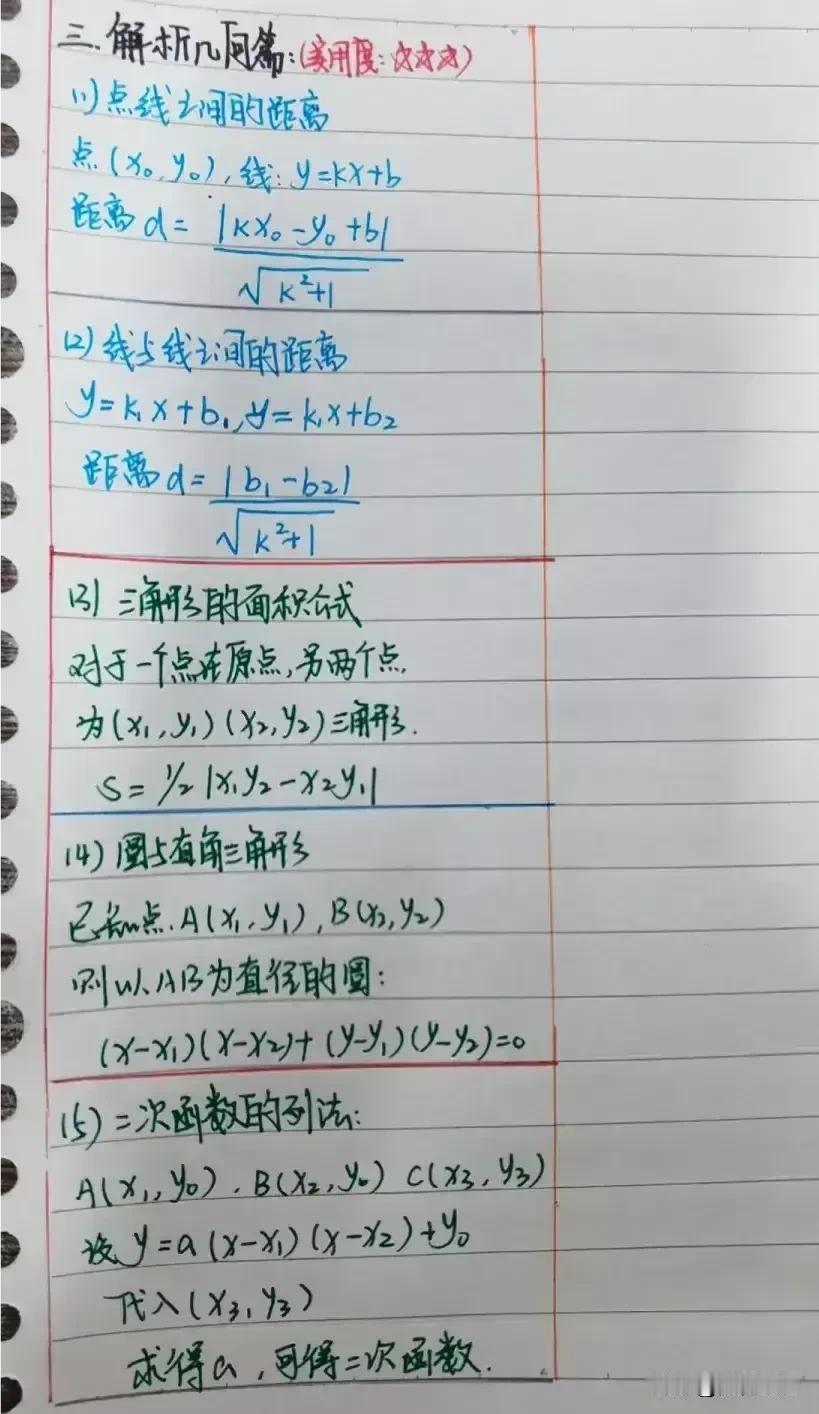 三.解析几何篇:(实用度:☆☆☆)
(1)点线之间的距离
点(x₀,y₀),线:y=kx+b
距离d=|kx₀-y₀+b|
√k²+1
(2)线与线之间的距离
y=k₁x+b₁,y=k₁x+b₂
距离d=|b₁-b₂|
√k²+1
(3)三角形的面积公式
对于一个点在原点,另两个点.
为(x₁,y₁)(x₂,y₂)三角形.
S=1/2|x₁y₂-x₂y₁|
(4)圆与直角三角形
已知点.A(x₁,y₁),B(x₂,y₂)
则以AB为直径的圆:
(x-x₁)(x-x₂)+(y-y₁)(y-y₂)=0
(5)二次函数的列法:
A(x₁,y₀).B(x₂,y₀) C(x₃,y₃)
设y=a(x-x₁)(x-x₂)+y₀
代入(x₃,y₃)
求得a,可得二次函数.